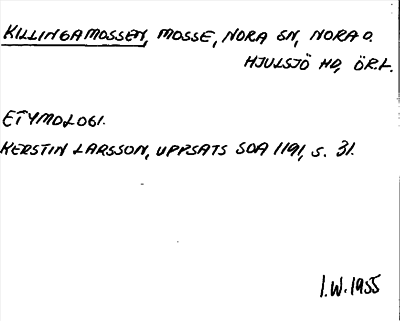 KILLINGAMOSSEN, MOSSE, NORA SN, NORA O.
HJULSJÖ HD, ÖR.L.
ETYMOLOGI.
KERSTIN LARSSON, UPPSATS SOA 1191, S. 31.
I.W. 1955